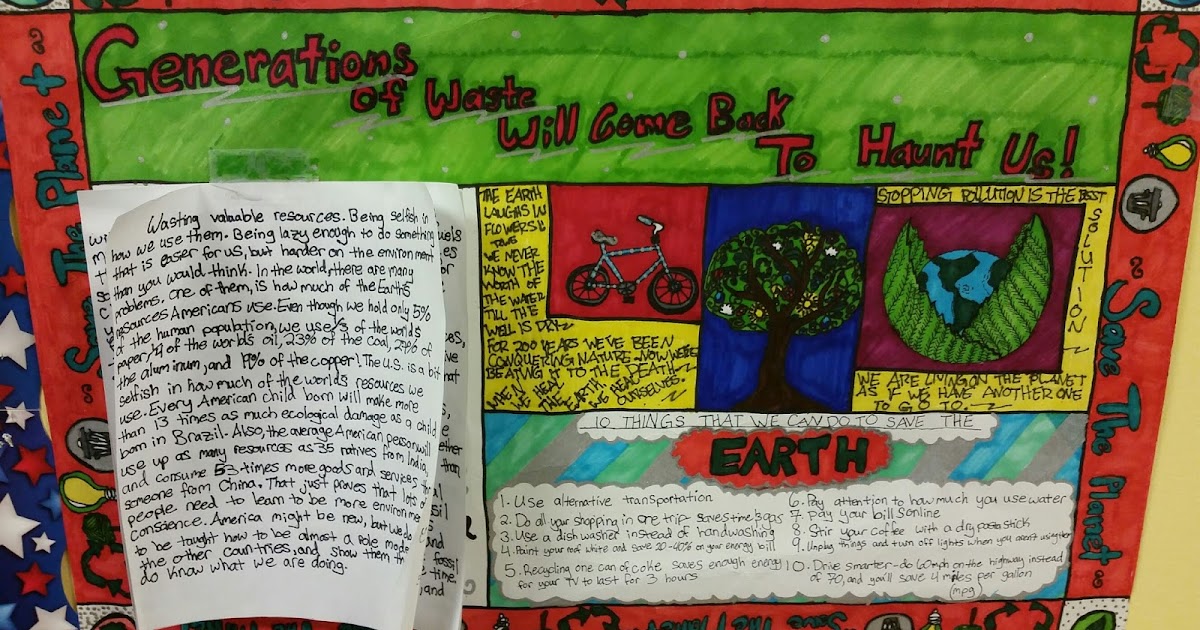 Generations
of Waste
Will Come Back
To Haunt Us!
Save The Planet
Wasting valuable resources. Being selfish in
how we use them. Being lazy enough to do something
that is easier for us, but harder on the environment
than you would think. In the world, there are many
problems. One of them, is how much of the Earth's
resources Americans use. Even though we hold only 5%
of the human population, we use ⅓ of the worlds
paper, ¼ of the worlds oil, 23% of the coal, 27% of
the aluminum, and 19% of the copper! The U.S. is a bit
selfish in how much of the worlds resources we
use. Every American child born will make more
than 13 times as much ecological damage as a child
born in Brazil. Also, the average American person will
use up as many resources as 35 natives from India,
and consume 53 times more goods and services than
someone from China. That just proves that lots of
people need to learn to be more environment
conscience. America might be new, but we do
to be taught how to be almost a role model
the other countries, and show them that
do know what we are doing.
THE EARTH
LAUGHS IN
FLOWERS!
WE NEVER
KNOW THE
WORTH OF
THE WATER
TILL THE
WELL IS DRY
FOR 200 YEARS WE'VE BEEN
CONQUERING NATURE-NOW WE'RE
BEATING IT TO THE DEATH
WHEN WE HEAL
THE EARTH WE HEAL
OURSELVES.
STOPPING POLLUTION IS THE BEST
SOLUTION
WE ARE LIVING ON THE PLANET
AS IF WE HAVE ANOTHER ONE
TO GO TO.
10 THINGS THAT WE CAN DO TO SAVE THE
EARTH
1. Use alternative transportation
2. Do all your shopping in one trip-saves time & gas
3. Use a dishwasher instead of handwashing
4. Paint your roof white and save 20-40% on your energy bill
5. Recycling one can of coke saves enough energy
for your TV to last for 3 hours
6. Pay attention to how much you use water
7. Pay your bills online
8. Stir your coffee with a dry pasta stick
9. Unplug things and turn off lights when you aren't using them
10. Drive smarter-do 60mph on the highway instead
of 70, and you'll save 4 miles per gallon
(mpg)
Save The Planet